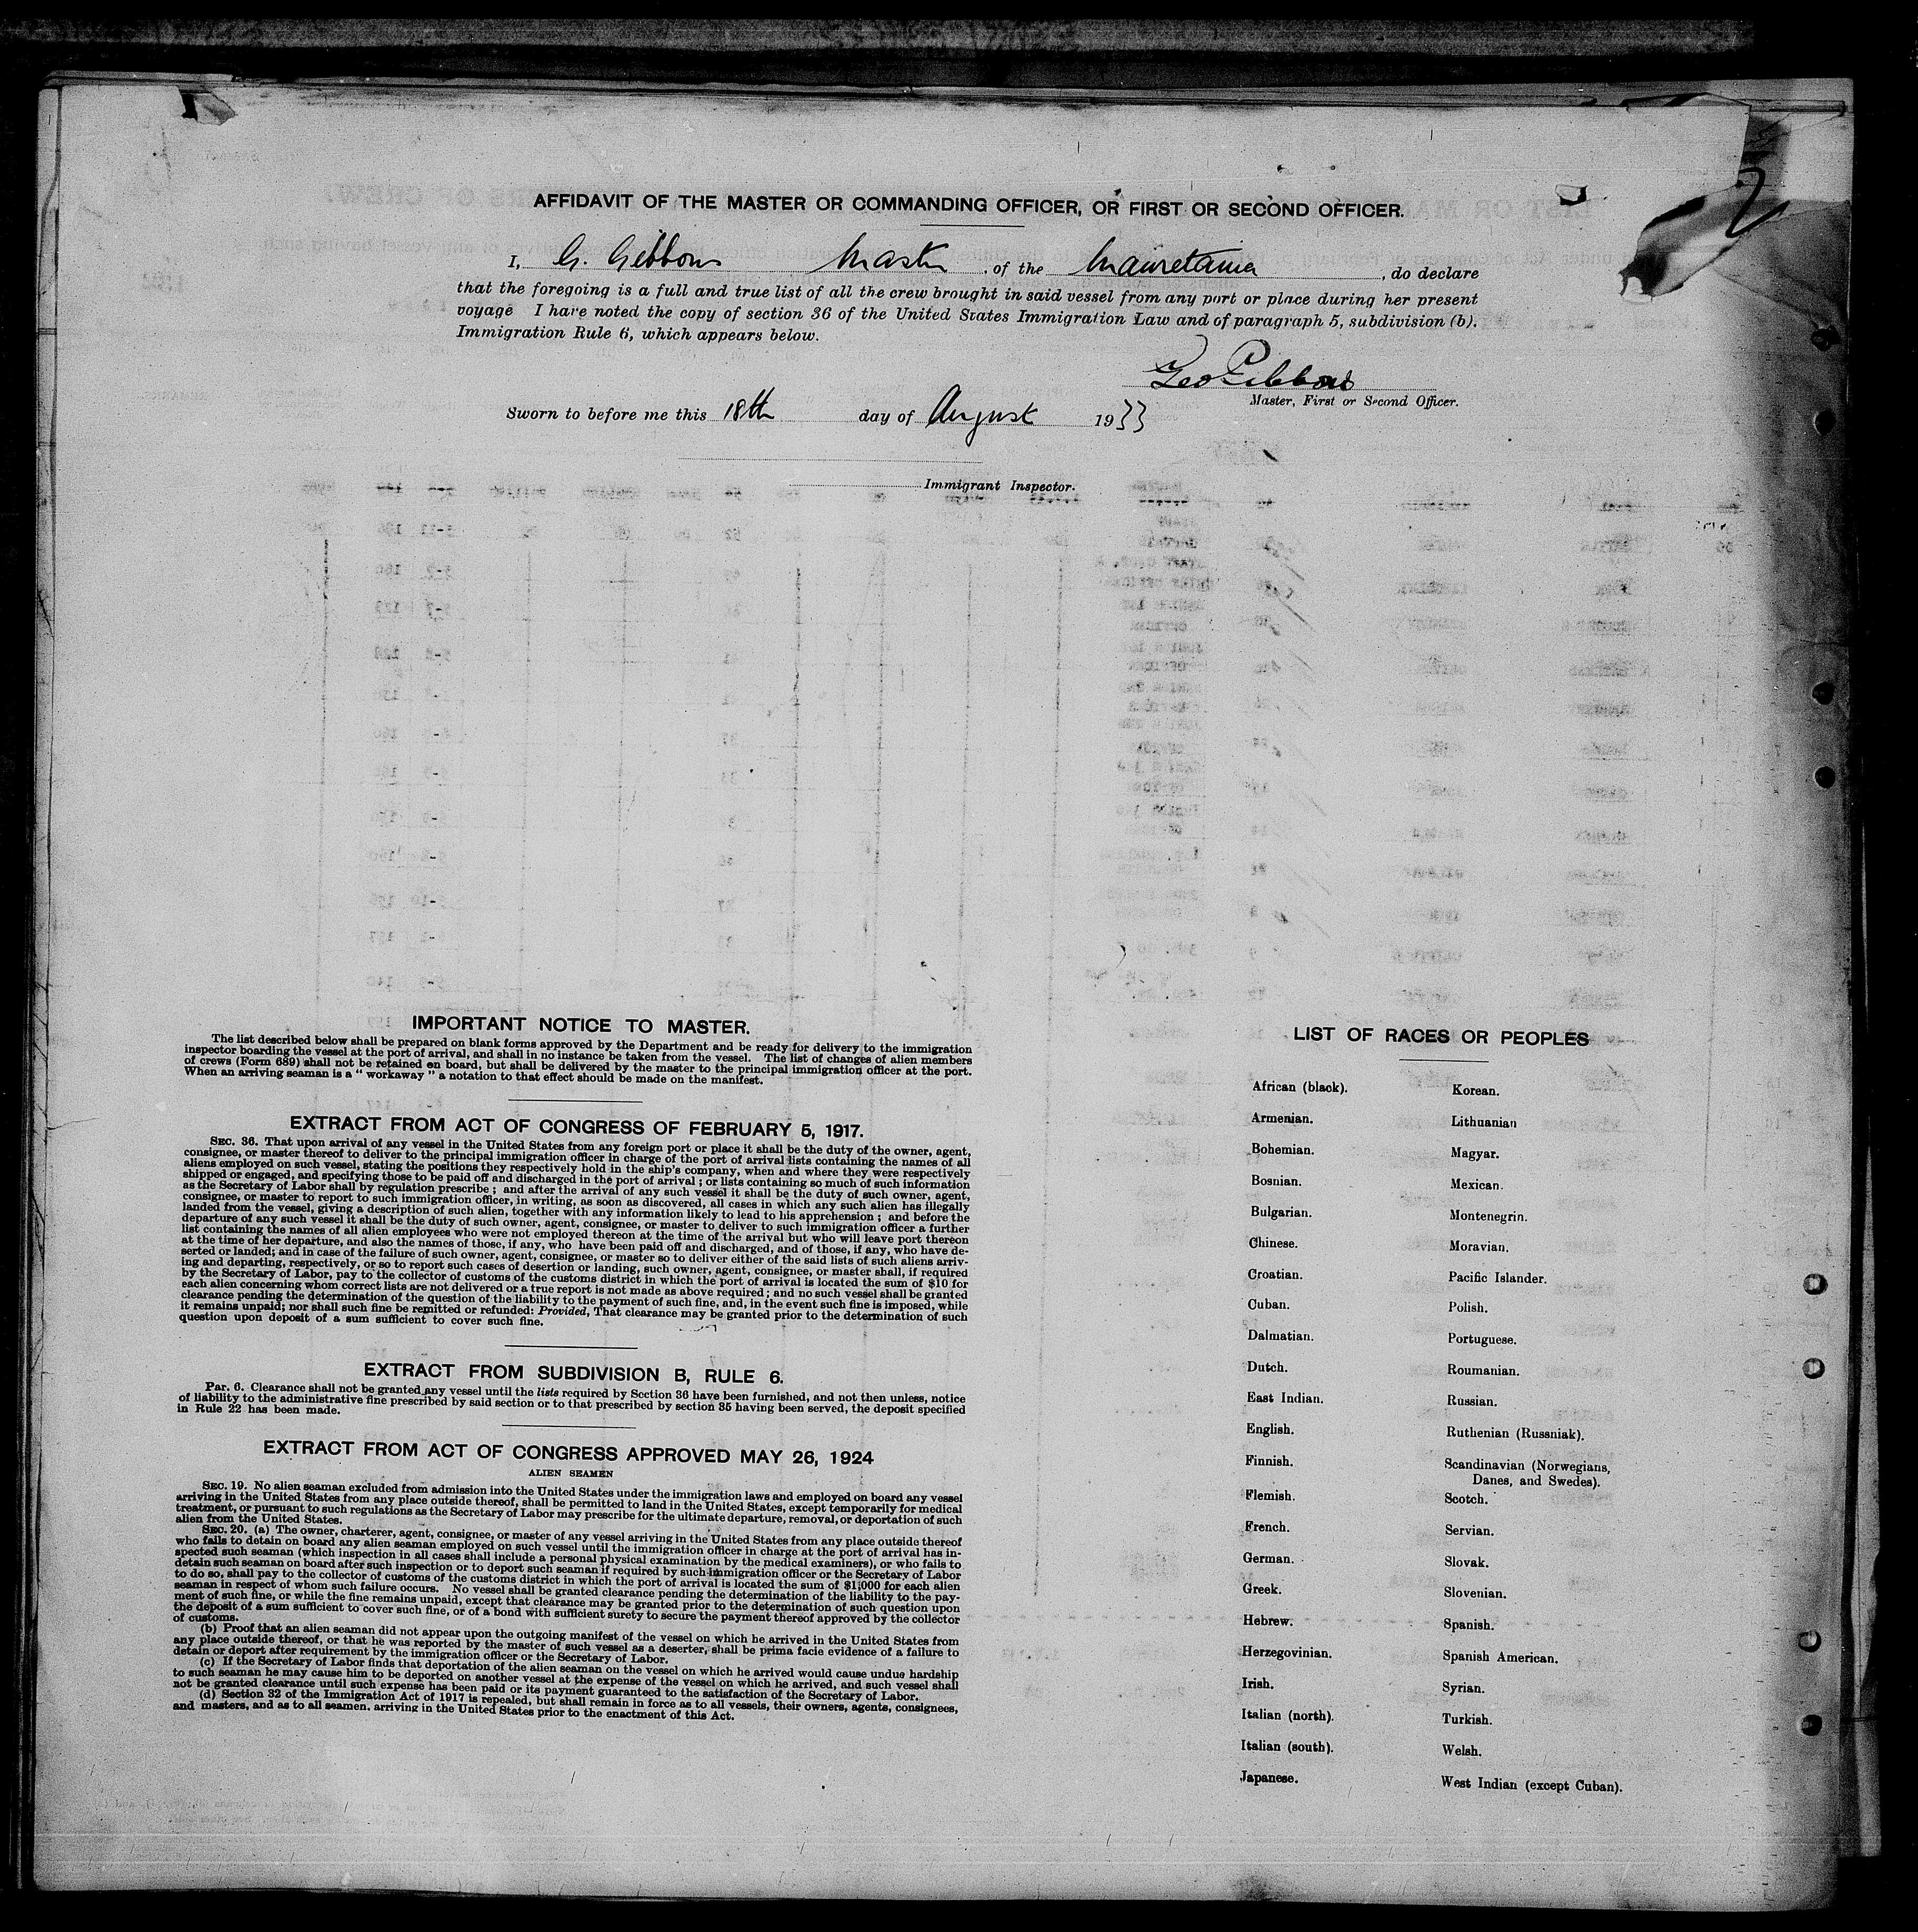 AFFIDAVIT OF THE MASTER OR COMMANDING OFFICER, OR FIRST OR SECOND OFFICER.
I, G. Gibbons Master of the Mauretania, do declare
that the foregoing is a full and true list of all the crew brought in said vessel from any port or place during her present
voyage I have noted the copy of section 36 of the United States Immigration Law and of paragraph 5, subdivision (b).
Immigration Rule 6, which appears below.
Geo Gibbons
Master, First or Second Officer.
Sworn to before me this 18th day of August 1933
Immigrant Inspector.
IMPORTANT NOTICE TO MASTER.
The list described below shall be prepared on blank forms approved by the Department and be ready for delivery to the immigration
inspector boarding the vessel at the port of arrival, and shall in no instance be taken from the vessel. The list of changes of alien members
of crews (Form 689) shall not be retained on board, but shall be delivered by the master to the principal immigration officer at the port.
When an arriving seaman is a " workaway " a notation to that effect should be made on the manifest.
EXTRACT FROM ACT OF CONGRESS OF FEBRUARY 5, 1917.
SEC. 36. That upon arrival of any vessel in the United States from any foreign port or place it shall be the duty of the owner, agent,
consignee, or master thereof to deliver to the principal immigration officer in charge of the port of arrival lists containing the names of all
aliens employed on such vessel, stating the positions they respectively hold in the ship's company, when and where they were respectively
shipped or engaged, and specifying those to be paid off and discharged in the port of arrival ; or lists containing so much of such information
as the Secretary of Labor shall by regulation prescribe ; and after the arrival of any such vessel it shall be the duty of such owner, agent,
consignee, or master to report to such immigration officer, in writing, as soon as discovered, all cases in which any such alien has illegally
landed from the vessel, giving a description of such alien, together with any information likely to lead to his apprehension ; and before the
departure of any such vessel it shall be the duty of such owner, agent, consignee, or master to deliver to such immigration officer a further
list containing the names of all alien employees who were not employed thereon at the time of the arrival but who will leave port thereon
at the time of her departure, and also the names of those, if any, who have been paid off and discharged, and of those, if any, who have de-
serted or landed; and in case of the failure of such owner, agent, consignee, or master so to deliver either of the said lists of such aliens arriv-
ing and departing, respectively, or so to report such cases of desertion or landing, such owner, agent, consignee, or master shall, if required
by the Secretary of Labor, pay to the collector of customs of the customs district in which the port of arrival is located the sum of $10 for
each alien concerning whom correct lists are not delivered or a true report is not made as above required ; and no such vessel shall be granted
clearance pending the determination of the question of the liability to the payment of such fine, and, in the event such fine is imposed, while
it remains unpaid; nor shall such fine be remitted or refunded: Provided, That clearance may be granted prior to the determination of such
question upon deposit of a sum sufficient to cover such fine.
EXTRACT FROM SUBDIVISION B, RULE 6.
Par. 6. Clearance shall not be granted any vessel until the lists required by Section 36 have been furnished, and not then unless, notice
of liability to the administrative fine prescribed by said section or to that prescribed by section 35 having been served, the deposit specified
in Rule 22 has been made.
EXTRACT FROM ACT OF CONGRESS APPROVED MAY 26, 1924
ALIEN SEAMEN
SEC. 19. No alien seaman excluded from admission into the United States under the immigration laws and employed on board any vessel
arriving in the United States from any place outside thereof, shall be permitted to land in the United States, except temporarily for medical
treatment, or pursuant to such regulations as the Secretary of Labor may prescribe for the ultimate departure, removal, or deportation of such
alien from the United States.
SEC. 20. (a) The owner, charterer, agent, consignee, or master of any vessel arriving in the United States from any place outside thereof
who fails to detain on board any alien seaman employed on such vessel until the immigration officer in charge at the port of arrival has in-
spected such seaman (which inspection in all cases shall include a personal physical examination by the medical examiners), or who fails to
detain such seaman on board after such inspection or to deport such seaman if required by such immigration officer or the Secretary of Labor
to do so, shall pay to the collector of customs of the customs district in which the port of arrival is located the sum of $1,000 for each alien
seaman in respect of whom such failure occurs. No vessel shall be granted clearance pending the determination of the liability to the pay-
ment of such fine, or while the fine remains unpaid, except that clearance may be granted prior to the determination of such question upon
the deposit of a sum sufficient to cover such fine, or of a bond with sufficient surety to secure the payment thereof approved by the collector
of customs.
(b) Proof that an alien seaman did not appear upon the outgoing manifest of the vessel on which he arrived in the United States from
any place outside thereof, or that he was reported by the master of such vessel as a deserter, shall be prima facie evidence of a failure to
detain or deport after requirement by the immigration officer or the Secretary of Labor.
(c) If the Secretary of Labor finds that deportation of the alien seaman on the vessel on which he arrived would cause undue hardship
to such seaman he may cause him to be deported on another vessel at the expense of the vessel on which he arrived, and such vessel shall
not be granted clearance until such expense has been paid or its payment guaranteed to the satisfaction of the Secretary of Labor.
(d) Section 32 of the Immigration Act of 1917 is repealed, but shall remain in force as to all vessels, their owners, agents, consignees,
and masters, and as to all seamen, arriving in the United States prior to the enactment of this Act.
LIST OF RACES OR PEOPLES
African (black).
Armenian.
Bohemian.
Bosnian.
Bulgarian.
Chinese.
Croatian.
Cuban.
Dalmatian.
Dutch.
East Indian.
English.
Finnish.
Flemish.
French.
German.
Greek.
Hebrew.
Herzegovinian.
Irish.
Italian (north).
Italian (south).
Japanese.
Korean.
Lithuanian
Magyar.
Mexican.
Montenegrin.
Moravian.
Pacific Islander.
Polish.
Portuguese.
Roumanian.
Russian.
Ruthenian (Russniak).
Scandinavian (Norwegians,
Danes, and Swedes).
Scotch.
Servian.
Slovak.
Slovenian.
Spanish.
Spanish American.
Syrian.
Turkish.
Welsh.
West Indian (except Cuban).